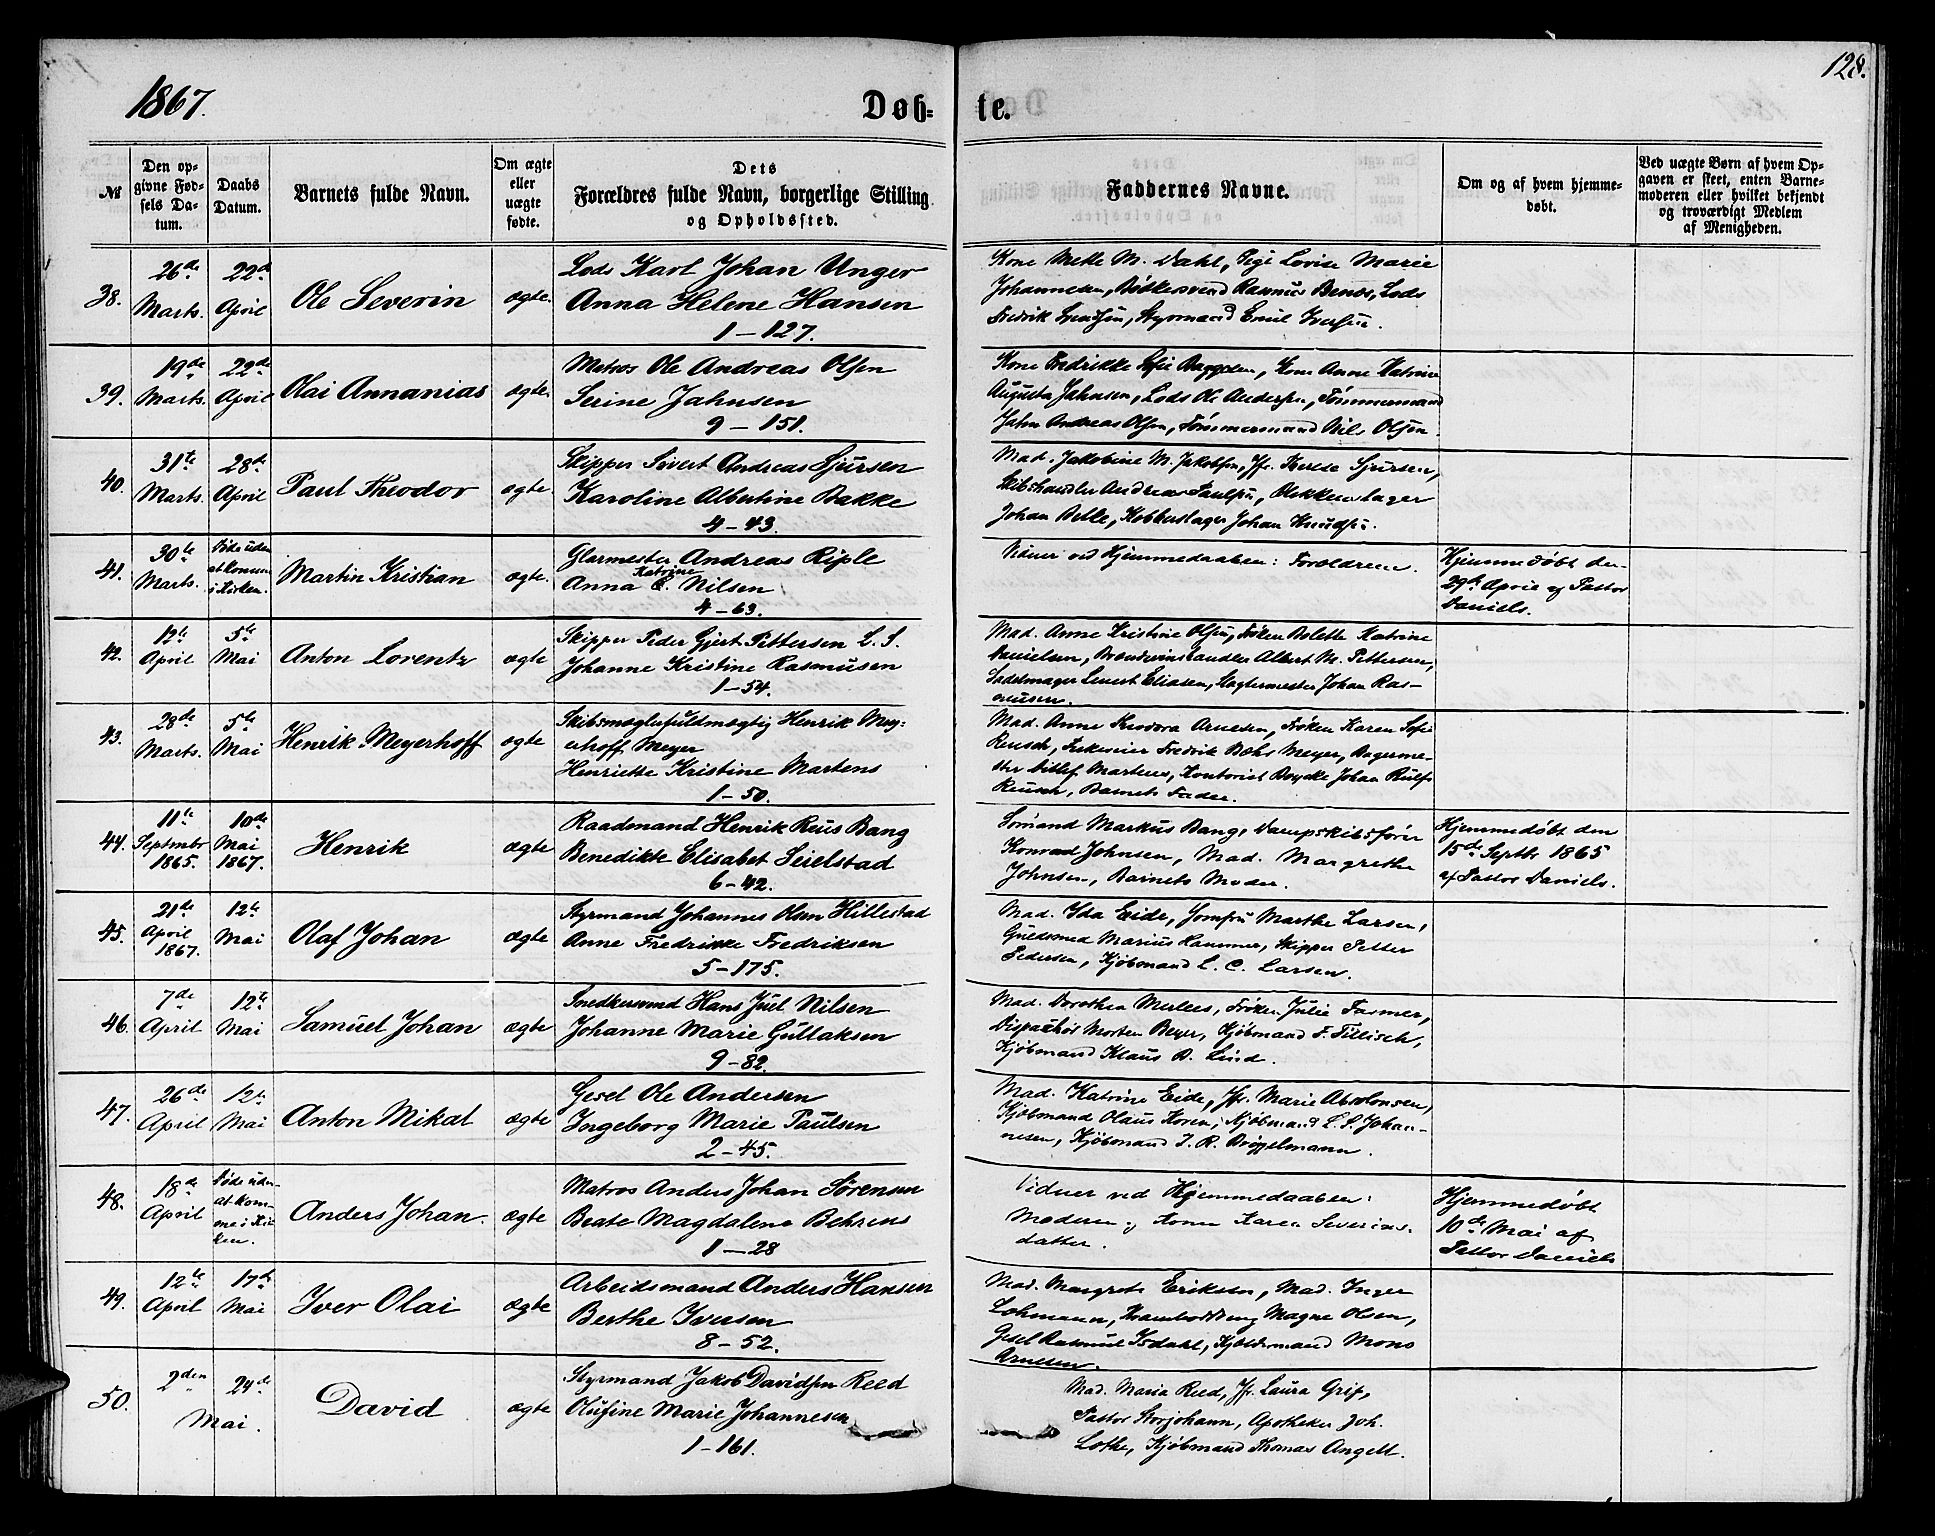 1867.
Døb=
te.
128.
№
Den op-
givne Fød-
sels Da-
tum.
Daabs
Datum.
Barnets fulde Navn.
Om ægte
eller
uægte
fødte.
Dets
Forældres fulde Navn, borgerlige Stilling
og Opholdssted.
Faddernes Navne.
Om og af hvem hjemme-
døbt.
Ved uægte Børn af hvem Op-
gaven er skeet, enten Barne-
moderen eller hvilket bekjendt
og troværdigt Medlem
af Menigheden.
38.
26de
Marts.
22de
April
Ole Severin
ægte.
Lods Karl Johan Unger
Anna Helene Hansen
1 – 127.
Kone Mette M. Dahl, Pige Lovise Marie
Johannesen, Bødkersvend Rasmus Lods
Fredrik Styrmand Emil Iversen.
39.
19de
Marts.
22de
April
Olai Annanias
ægte.
Matros Ole Andreas Olsen
Serine Jahnsen
9 – 151.
Kone Fredrikke Sofie Kone Anne Katrine
Augusta Jahnsen, Lods Ole Andersen, Tømmermand
Jahn Andreas Olsen, Tømmermand Nils Olsen.
40.
31te
Marts.
28de
April
Paul Theodor
ægte.
Skipper Sivert Andreas Sjursen
Karoline Albertine Bakke
4 – 43.
Mad. Jakobine M. Jakobsen, Jfr. Sjursen,
Skibshandler Andreas Paulsen, Blokkemager
Johan Kobberslager Johan Knudsen.
41.
30te
Marts.
Døde uden
at komme
i Kirken.
Martin Kristian
ægte.
Glarmester Andreas Riple
Katrine
Anna C. Nilsen
4 – 63.
Vidner ved Hjemmedaaben: Forældrene.
Hjemmedøbt den
29de April af Pastor
Daniels.
42.
12te
April
5te
Mai
Anton Lorentz
ægte
Skipper Peder Gjert Pettersen L. S.
Johanne Kristine Rasmusen
1 – 54.
Mad. Anne Kristine Olsen, Frøken Bolette Katrine
Danielsen, Brændevinshandler Albert M. Pettersen,
Sadelmager Sivert Eliasen, Slagtermester Johan Ras-
musen.
43.
28de
Marts.
5te
Mai
Henrik Meyerhoff
ægte
Skibsmæglerfuldmægtig Henrik Mey-
erhoff Meyer
Henriette Kristine Martens
1 – 50.
Mad. Anne Theodora Arnesen, Frøken Karen Sofie
Reusch, Fredrik Meyer, Bagerme-
ster Ditlef Martens, Kontorist Johan
Reusch, Barnets Fader.
44.
11te
Septmbr
1865.
10de
Mai
1867.
Henrik
ægte
Raadmand Henrik Reus Bang
Benedikte Elisabet Seielstad
6 – 42.
Sømand Markus Bang, Dampskibsfører
Konrad Johnsen, Mad. Margrethe
Johnsen, Barnets Moder.
Hjemmedøbt den
15de Septbr 1865
af Pastor Daniels.
45.
21de
April
1867.
12te
Mai
Olaf Johan
ægte
Styrmand Johannes Olsen Hillestad
Anne Fredrikke Fredriksen
5 – 175.
Mad. Ida Eide, Jomfru Marthe Larsen,
Guldsmed Marius Hammer, Skipper Petter
Pedersen, Kjøbmand L. C. Larsen.
46.
7de
April
12te
Mai
Samuel Johan
ægte
Snedkersvend Hans Juel Nilsen
Johanne Marie Gullaksen
9 – 82.
Mad. Dorothea Merlees, Frøken Julie Fasmer,
Dispachør Morten Beyer, Kjøbmand F. Tillisch,
Kjøbmand Klaus B. Lind.
47.
26de
April
12te
Mai
Anton Mikal
ægte
Gesel Ole Andersen
Ingeborg Marie Paulsen
2 – 45.
Mad. Katrine Eide, Jfr. Marie Absolonsen,
Kjøbmand Olaus Koren, Kjøbmand L. S. Johan-
nesen, Kjøbmand J. R. Brøgelmann.
48.
18de
April
Døde uden
at kom-
me i Kir-
ken.
Anders Johan.
ægte
Matros Anders Johan Sørensen
Beate Magdalene Behrens
1 – 28
Vidner ved Hjemmedaaben:
Moderen og Kone Karen Severins-
datter.
Hjemmedøbt
10de Mai af
Pastor Daniels
49.
12te
April
17de
Mai
Iver Olai
ægte
Arbeidsmand Anders Hansen
Berthe Iversen
8 – 52.
Mad. Margrete Eriksen, Mad. Inger
Lohmann, Magne Olsen,
Gesel Rasmus Isdahl, Mons
Arnesen.
50.
2den
24de
Mai.
David
ægte
Styrmand Jakob Davidsen Reed
Olufine Marie Johannesen
1 – 161.
Mad. Maria Reed, Jfr. Laura Grip,
Pastor Storjohann, Apotheker Joh.
Lothe, Kjøbmand Thomas Angell.